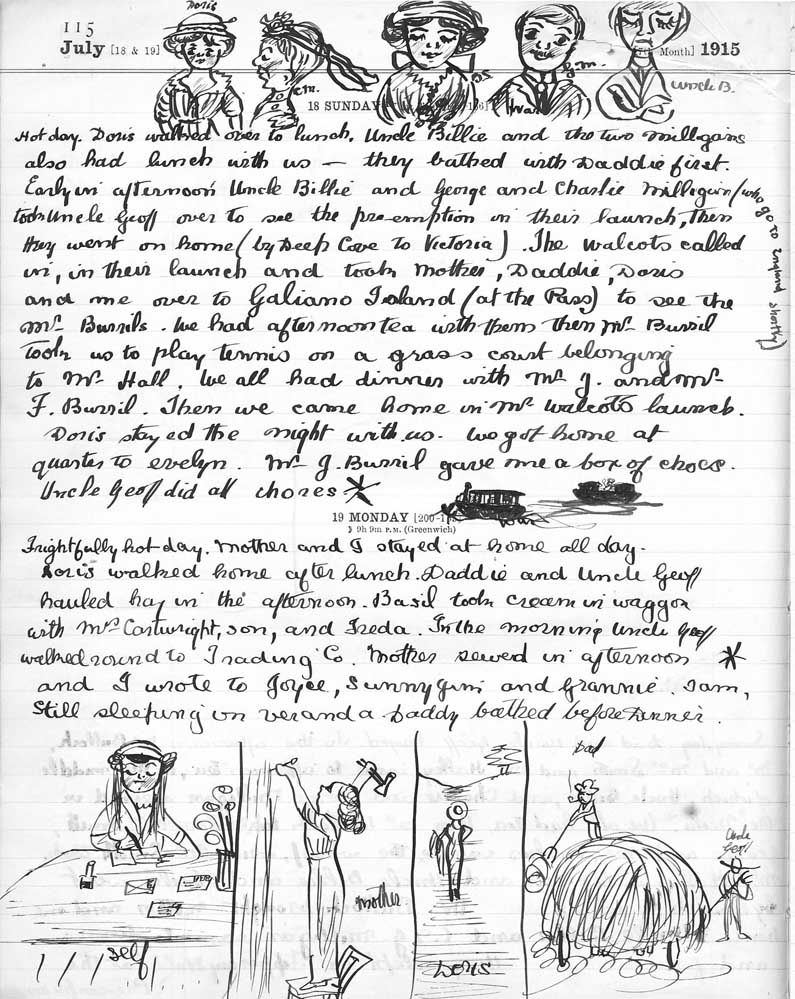 115
July [18 & 19] [7th Month] 1915
Doris
C.M.
G.M.
Uncle B.
18 SUNDAY
Hot day. Doris walked over to lunch. Uncle Billie and the two Milligans
also had lunch with us — they bathed with Daddie first.
Early in afternoon Uncle Billie and George and Charlie Milligan (who
go to England shortly)
took Uncle Geoff over to see the pre-emption in their launch, then
they went on home (by Deep Cove to Victoria). The Walcots called
in, in their launch and took Mother, Daddie, Doris
and me over to Galiano Island (at the Pass) to see the
Mr Burrils. We had afternoon tea with them then Mr Burril
took us to play tennis on a grass court belonging
to Mr Hall. We all had dinner with Mr J. and Mr
F. Burril. Then we came home in Mr Walcots launch.
Doris stayed the night with us. We got home at
quarter to evelyn. Mr J. Burril gave me a box of chocs.
Uncle Geoff did all chores
19 MONDAY [200-165]
☽ 9h 9m P.M. (Greenwich)
Frightfully hot day. Mother and I stayed at home all day.
Doris walked home after lunch. Daddie and Uncle Geoff
hauled hay in the afternoon. Basil took cream in waggon
with Mrs Cartwright, son, and Freda. In the morning Uncle Geoff
walked round to Trading Co. Mother sewed in afternoon
and I wrote to Joyce, Sunnygim and Grannie. I am,
Still sleeping on veranda Daddy bathed before Dinner.
self
Mother
DORIS
Dad
Uncle
Geoff